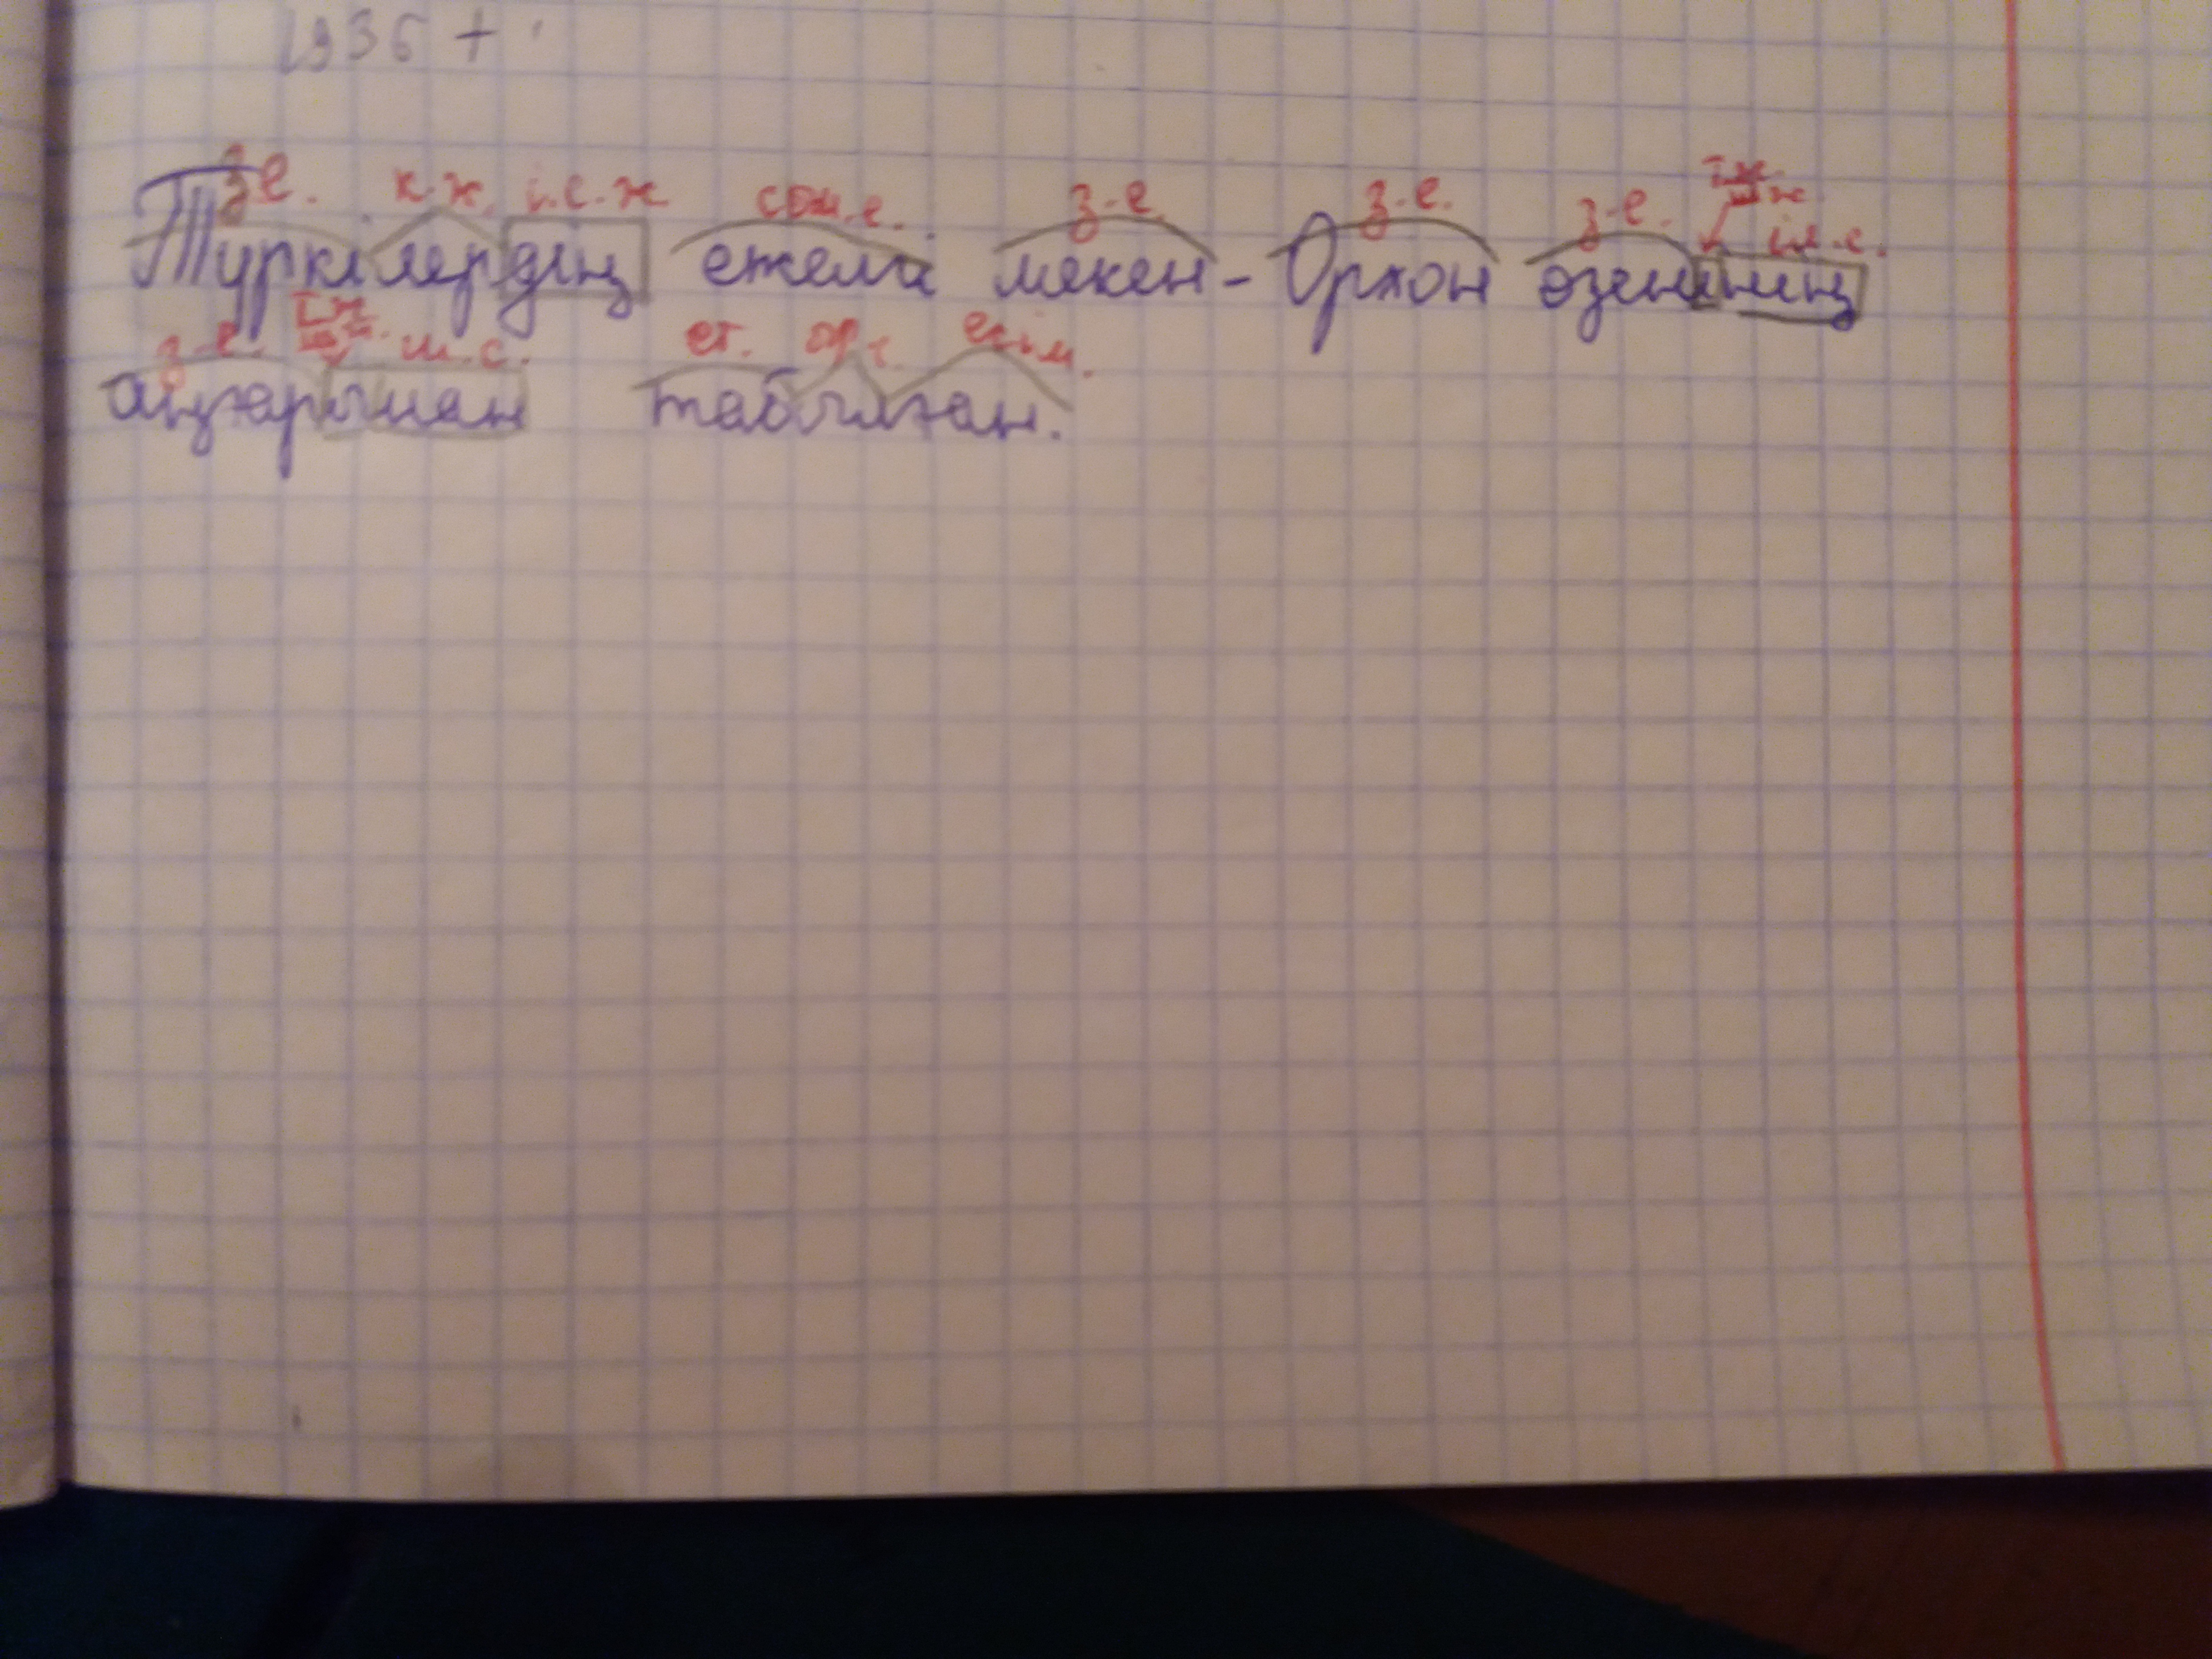 1936 +
з.е. к.ж. і.с.ж сын.е. з.е. з.е. з.е. т.ж. ІІІ ж іл.с.
Түркілердің ежелгі мекен - Орхон өзенінің
з.е. т.ж. ш.с. ет. есім.
аңғарынан табылған.